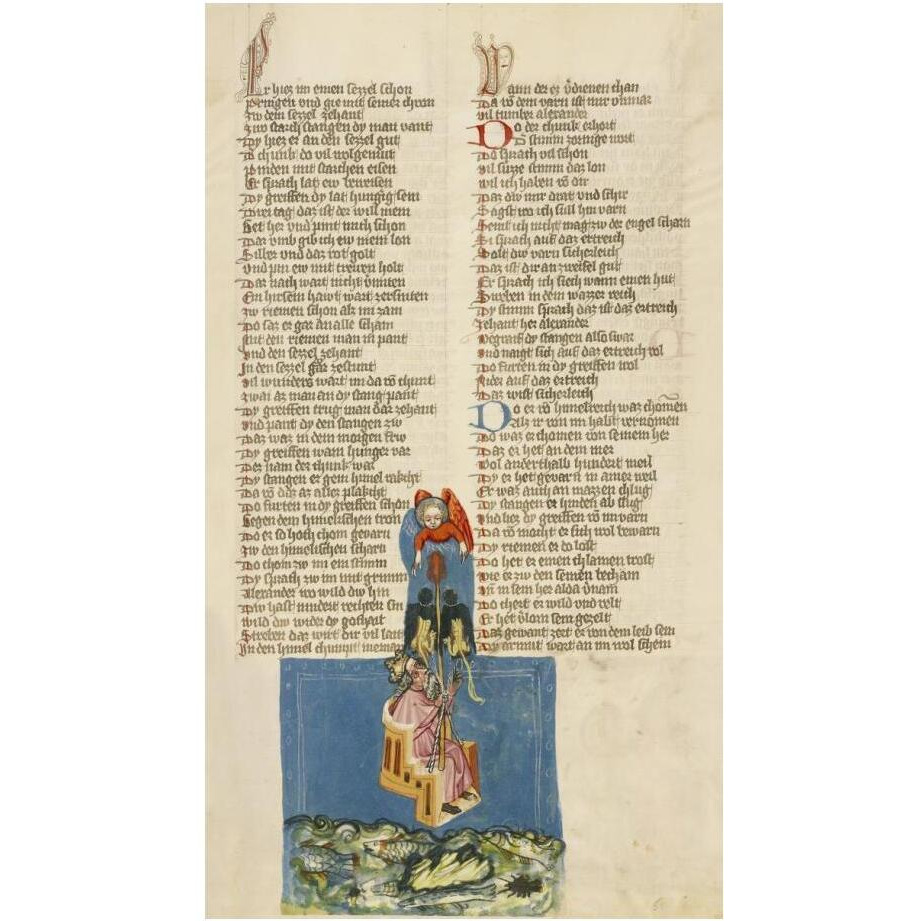 Er hiez im einen sezzel schon
Pringen vnd gie mit seiner chron
Zw dem sezzel zehant
Zwo starch stangen dy man vant
Dy hiez er an den sezzel gut
D chunk do vil wolgemut
Pinden mit starchen eisen
Er sprach lat ew beweisen
Dy greiffen dy lat hungig sein
Drei tag daz ist der will mein
Het her vnd pint mich schon
Dar vmb gib ich ew mein lon
Silber vnd daz rot golt
Vnd pin ew mit treuen holt
Daz nach wart nicht vmiten
Ein hirsein hawt wart zersniten
Zw riemen schon als im zam
Do saz er gar an alle scham
Mit den riemen man in pant
Vnd den sezzel zehant
In den sezzel gar zestunt
Vil wunders wart im da vō chunt
Zwai az man an dy stang pant
Dy greiffen trug man dar zehant
Vnd pant dy den stangen zw
Daz waz in dem morgen frw
Dy greiffen warn hunger var
Der nam der chunk war
Dy stangen er gein himel rakcht
Da vō daz az aller plakcht
Do furten in dy greiffen schon
Gegen dem himelischen tron
Do er so hoch chom gevarn
Zw den himelischen scharn
Do chom zw im ein stimm
Dy sprach zw im mit grimm
Alexander wo wild dw hin
Dw hast nindert rechten sin
Wild dw wider dy gothait
Streben daz wirt dir vil lait
In den himel chumpt nieman
Wann der ez v̄dienen chan
Da vō dem varn ist nur vnmar
Vil tumber alexander
Do der chunk erhort
D stimm zornige wort
Do sprach vil schon
Vil suzze stimm daz lon
Wil ich haben vō dir
Daz dw mir drat vnd schir
Sagst wo ich sull hin varn
Seint ich nicht mag zw der engel scharn
Si sprach auf daz ertreich
Solt dw varn sicherleich
Daz ist dir an zweifel gut
Er sprach ich siech wann einen hut
Sweben in dem wazzer reich
Dy stimm sprach daz ist daz ertreich
Zehant her alexander
Begraif dy stangen also swar
Vnd naigt sich auf daz ertreich wol
Do furten in dy greiffen wol
Nider auf daz ertreich
Daz wist sicherleich
Do er vō himelreich waz chomen
Alz ir von im habt vernomen
Do waz er chomen von seinem her
Daz er het an dem mer
Wol anderthalb hundert meil
Dy er het gevarn in ainer weil
Er waz auch an mazzen chlug
Dy stangen er hinden ab slug
Vnd liez dy greiffen vō im varn
Da vō mocht er sich wol bewarn
Dy riemen er do lost
Do het er einen chlainen trost
Wie er zw den seinen becham
Vn̄ in sein her alda vnam
Do chert er wild vnd velt
Er het vlorn sein gezelt
Daz gewant zert er von dem leib sein
Dy armut wart an im wol schein